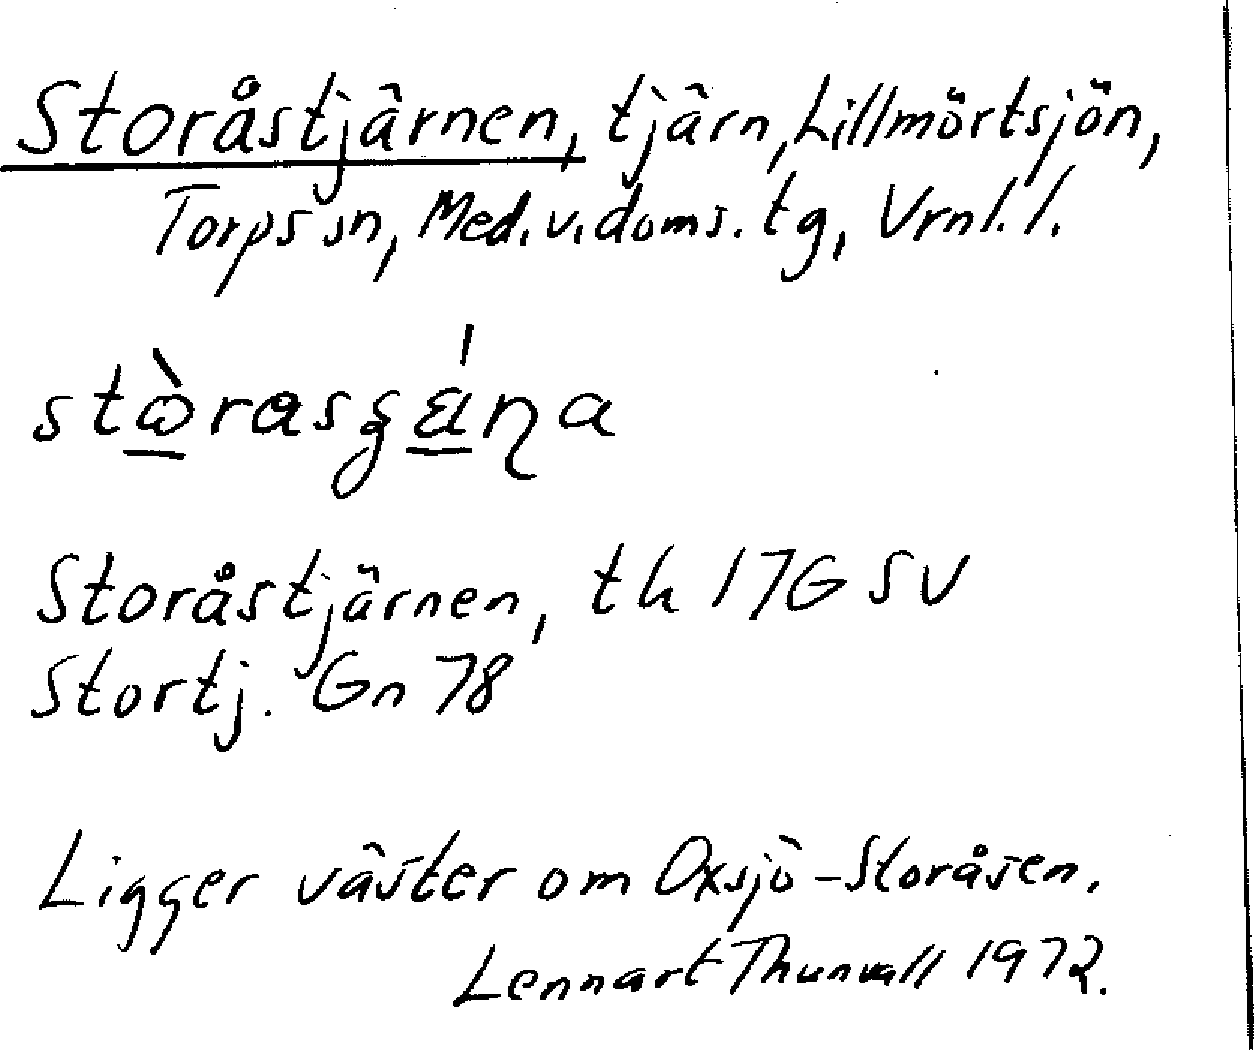 Storåstjärnen, tjärn, Lillmörtsjön,
Torps sn, Med. v. doms. tg, Vrnl. l.
Storåstjärnen, tk 17G SV
Stortj. Gn 78
Ligger väster om Oxsjö-Storåsen.
Lennart Thunvall 1972.